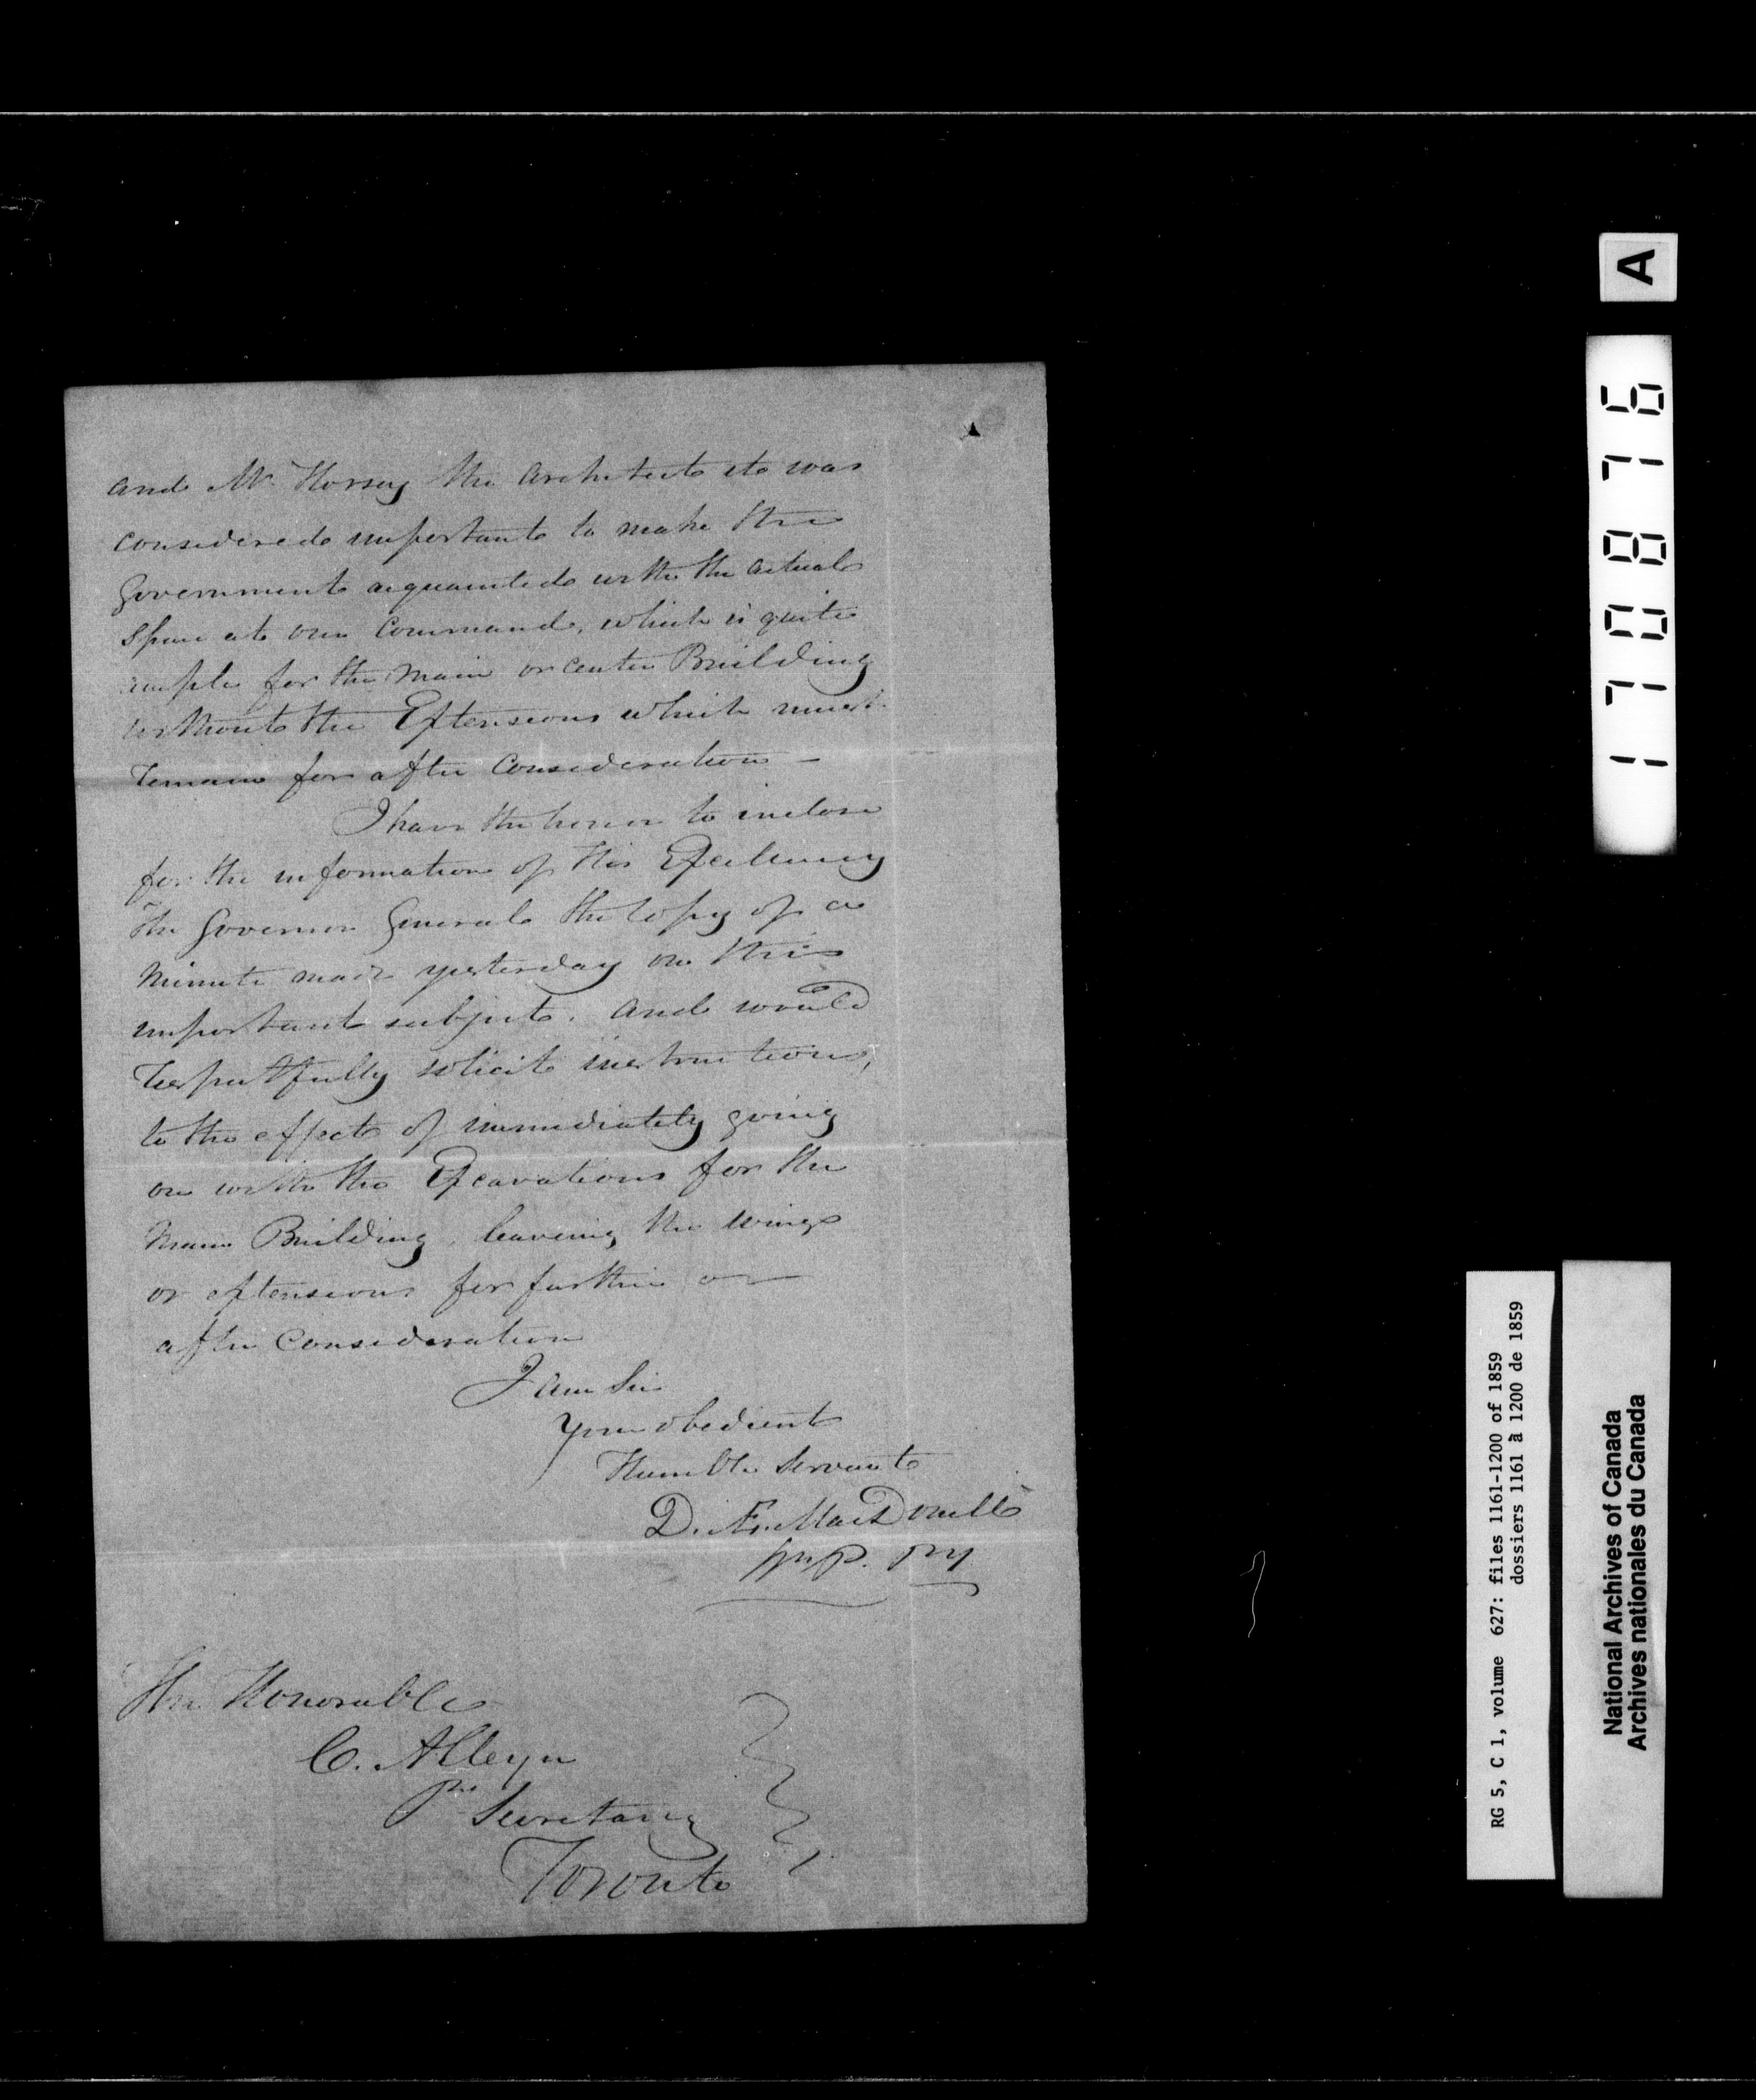 and Mr Horsey the Architect it was
considered important to make the
Government acquainted with the actual
space at our command, which is quite
ample for the Main or center Building
without the Extensions which must
remain for after Consideration —
I have the honor to inclose
for the information of His Excellency
the Governor General the Copy of a
Minute made yesterday on this
important subject. and would
respectfully solicit instructions,
to the effect of immediately going
on with the Excavations for the
Main Building, leaving the wings
or extensions for further or
after Consideration
I am Sir
Your obedient
Humble Servant
D. Æ. MacDonell
The Honorable
C. Alleyn
Secretary
Toronto
A
170876
RG 5, C 1, volume 627: files 1161-1200 of 1859
dossiers 1161 à 1200 de 1859
National Archives of Canada
Archives nationales du Canada